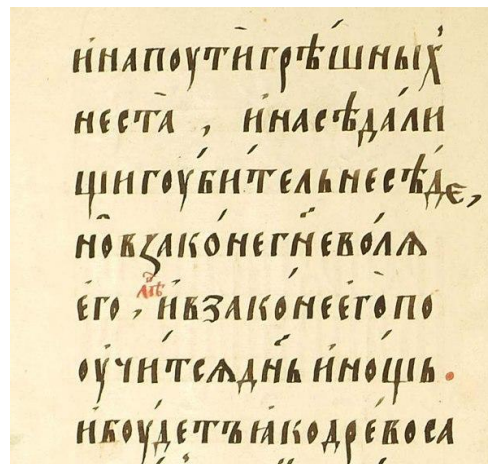 и҆напоути́грѣ́шны́х
неста̀ , и҆насѣда́ли
щигоуби́тельнесѣ́де,
но̑взако́негн҃ево́лѧ
є҆го̀, и҆взако́неєго̀по
оу҆чи́тсѧдн҃ь и҆но́щь.
и҆боу́детъꙗ҆кодре́воса